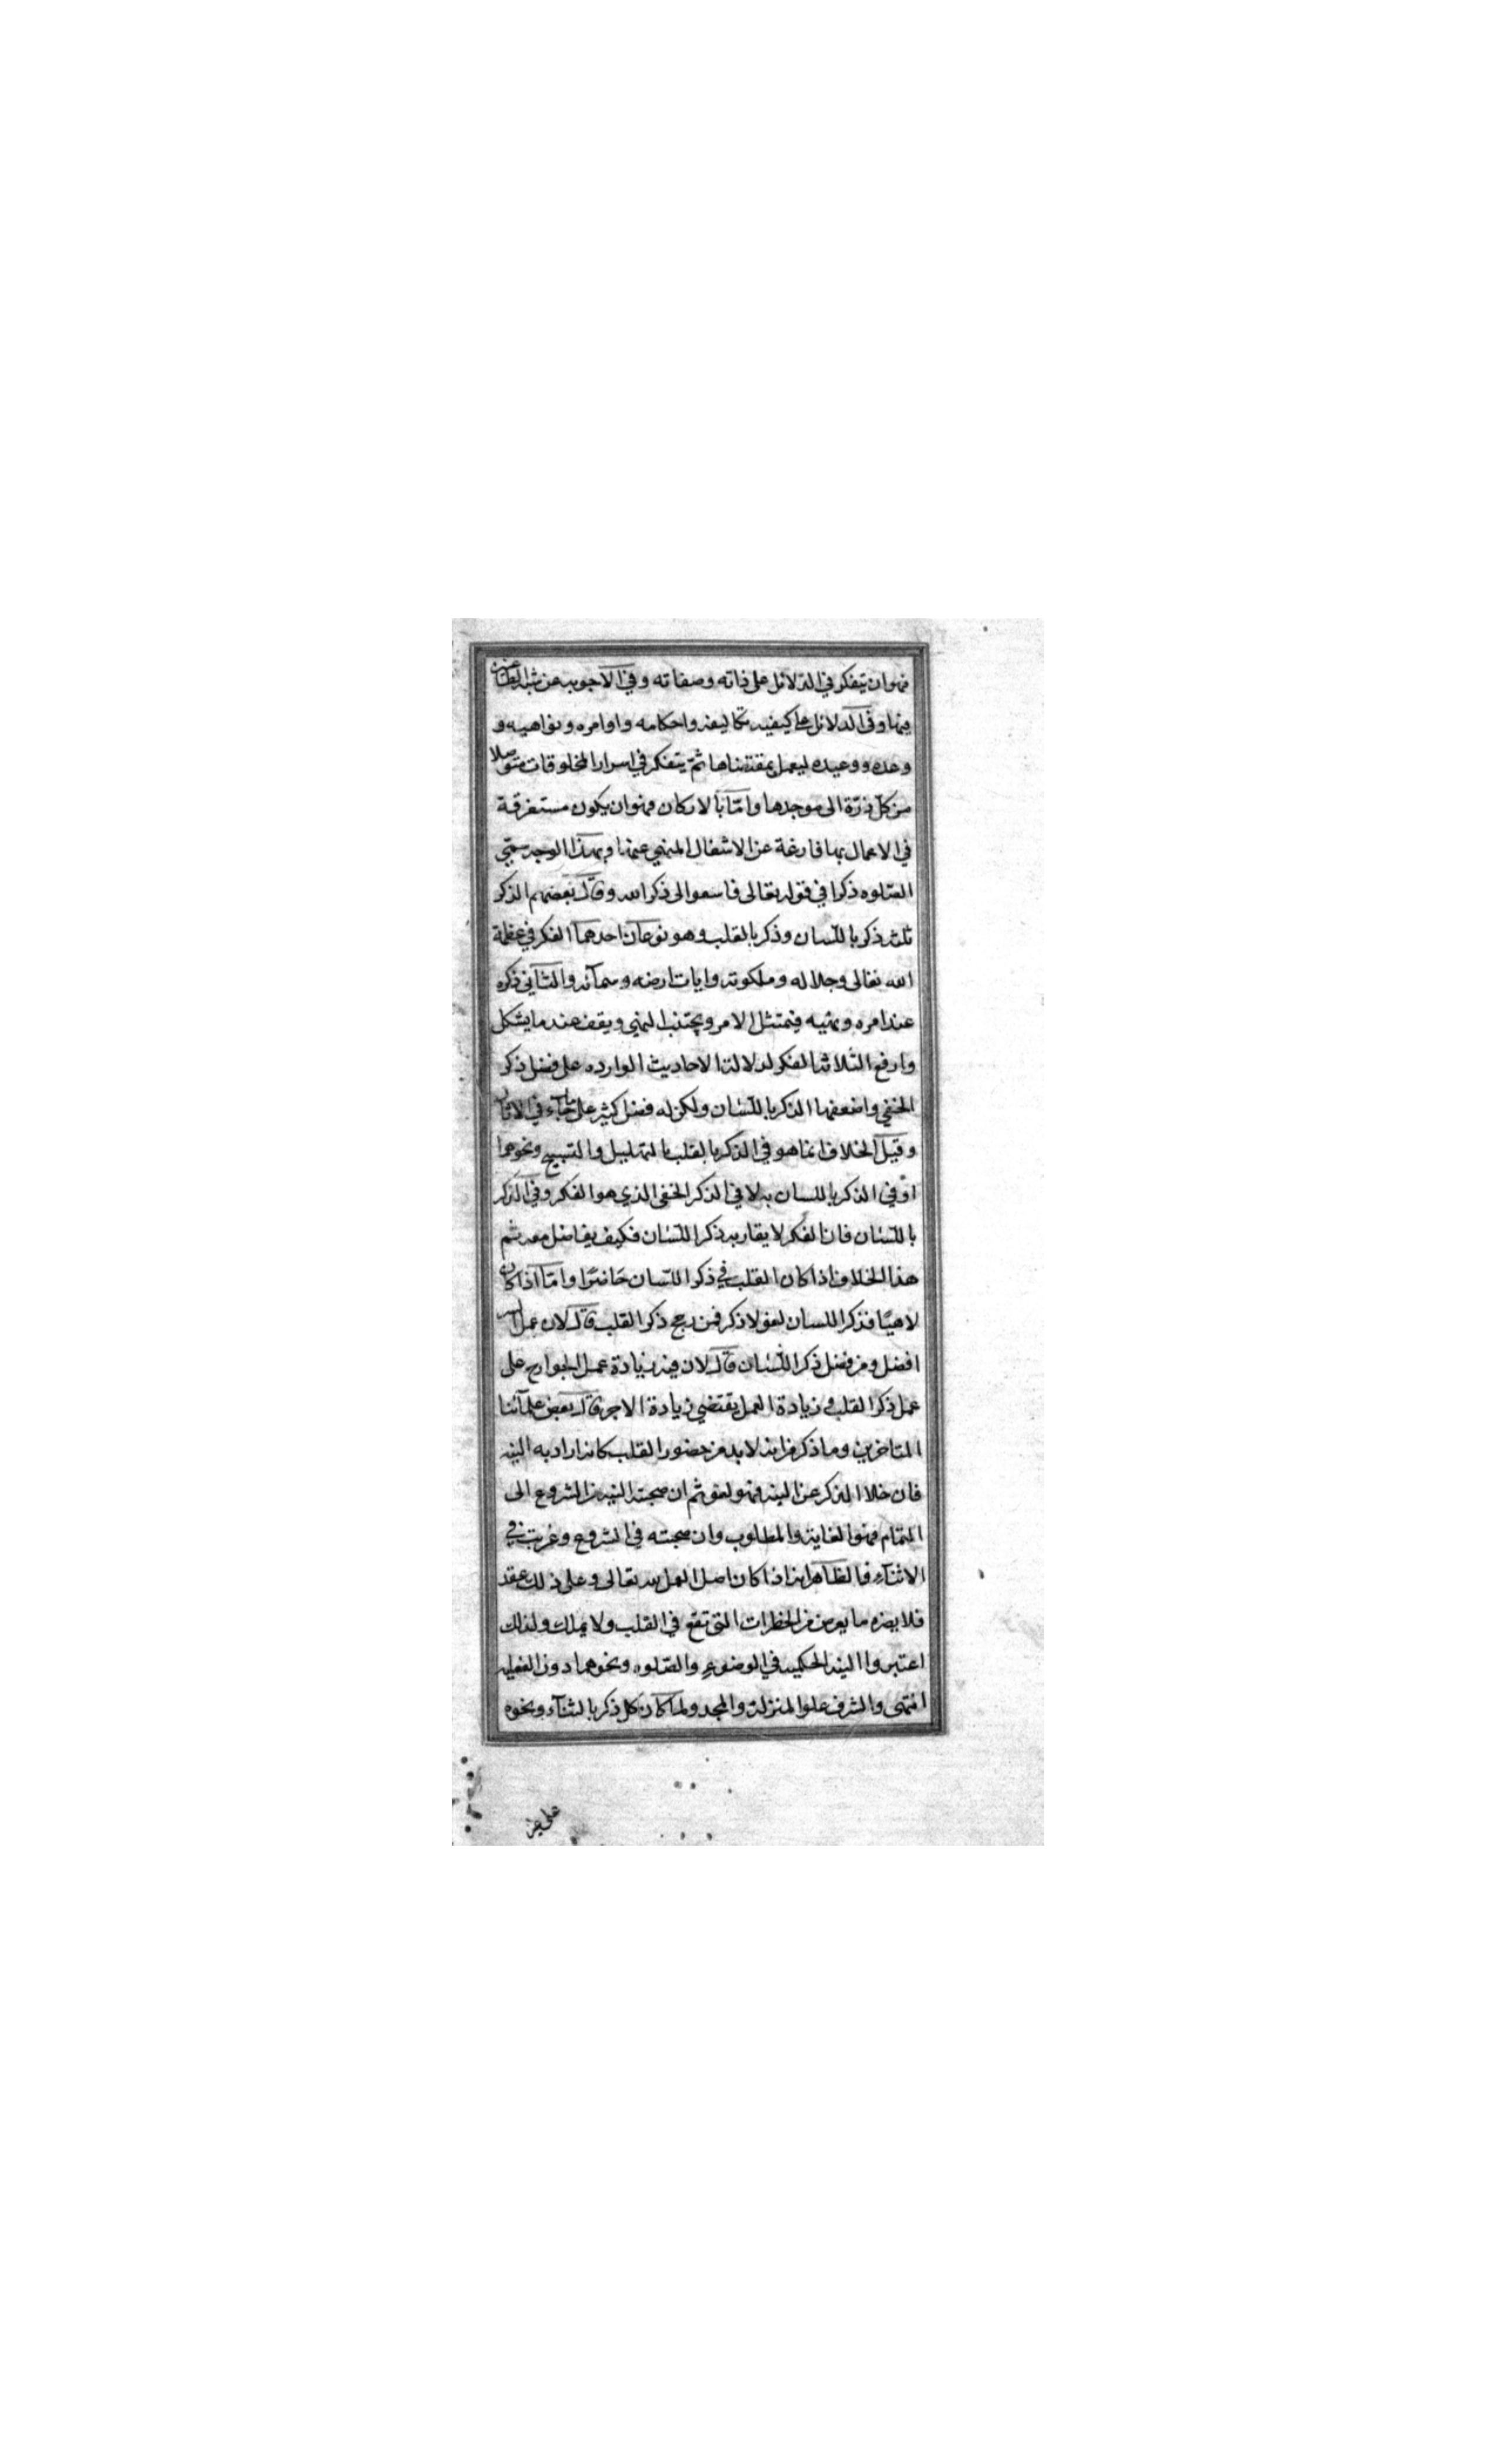 فهو ان يتفكر في الدلائل على ذاته وصفاته وفي الاجوبه عن شبه الطاعنين
فيها وفي الدلائل على كيفيه تكاليفه واحكامه واوامره ونواهيه و
وعده ووعيده ليعمل بمقتضاها ثم يتفكر في اسرار المخلوقات متوصلا
من كل ذرة الى موجدها واما بالاركان فهو ان يكون مستغرقة
في الاعمال بها فارغة عن الاشغال المنهي عنها وبهذا الوجه سمي
الصلوه ذكرا في قوله تعالى فاسعوا الى ذكر الله وقال بعضهم الذكر
ثلث ذكر باللسان وذكر بالقلب وهو نوعان احدهما الفكر في عظمة
الله تعالى وجلاله وملكوته وايات ارضه وسمآئه والثاني ذكره
عند امره ونهيه فيمتثل الامر ويجتنب النهي ويقف عند ما يشكل
وارفع الثلاثه الفكر لدلالة الاحاديث الوارده على فضل ذكر
الخفي واضعفها الذكر باللسان ولكن له فضل كثير على ما جآء في الاثار
وقيل الخلاف انما هو في الذكر بالقلب بالتهليل والتسبيح ونحوهما
او في الذكر باللسان به لا في الذكر الخفي الذي هو الفكر وفي الذكر
باللسان فان الفكر لا يقاربه ذكر اللسان فكيف يفاضل معه ثم
هذا الخلاف اذا كان القلب في ذكر اللسان حاضرا واما اذا كان
لاهيا فذكر اللسان لغو لا ذكر فمن رجح ذكر القلب قال لان عمل السر
افضل ومن فضل ذكر اللسان قال لان فيه زيادة عمل الجوارح على
عمل ذكر القلب وزيادة العمل يقتضي زيادة الاجر قال بعض علمآئنا
المتاخرين وما ذكر من انه لا بد من حضور القلب كانه اراد به النيه
فان خلا الذكر عن النيه فهو لغو ثم ان صحبته النيه من الشروع الى
التمام فهو الغاية والمطلوب وان صحبته في الشروع وغربت في
الاثنآء فالظاهر انه اذا كان اصل العمل لله تعالى وعلى ذلك عقد
فلا يضره ما يعرض من الخطرات التي تقع في القلب ولا يملك ولذلك
اعتبروا النيه الحكميه في الوضوء والصلوه ونحوهما دون الفعليه
انتهى والشرف علو المنزلة والمجد ولما كان كل ذكر بالثنآء ونحوه